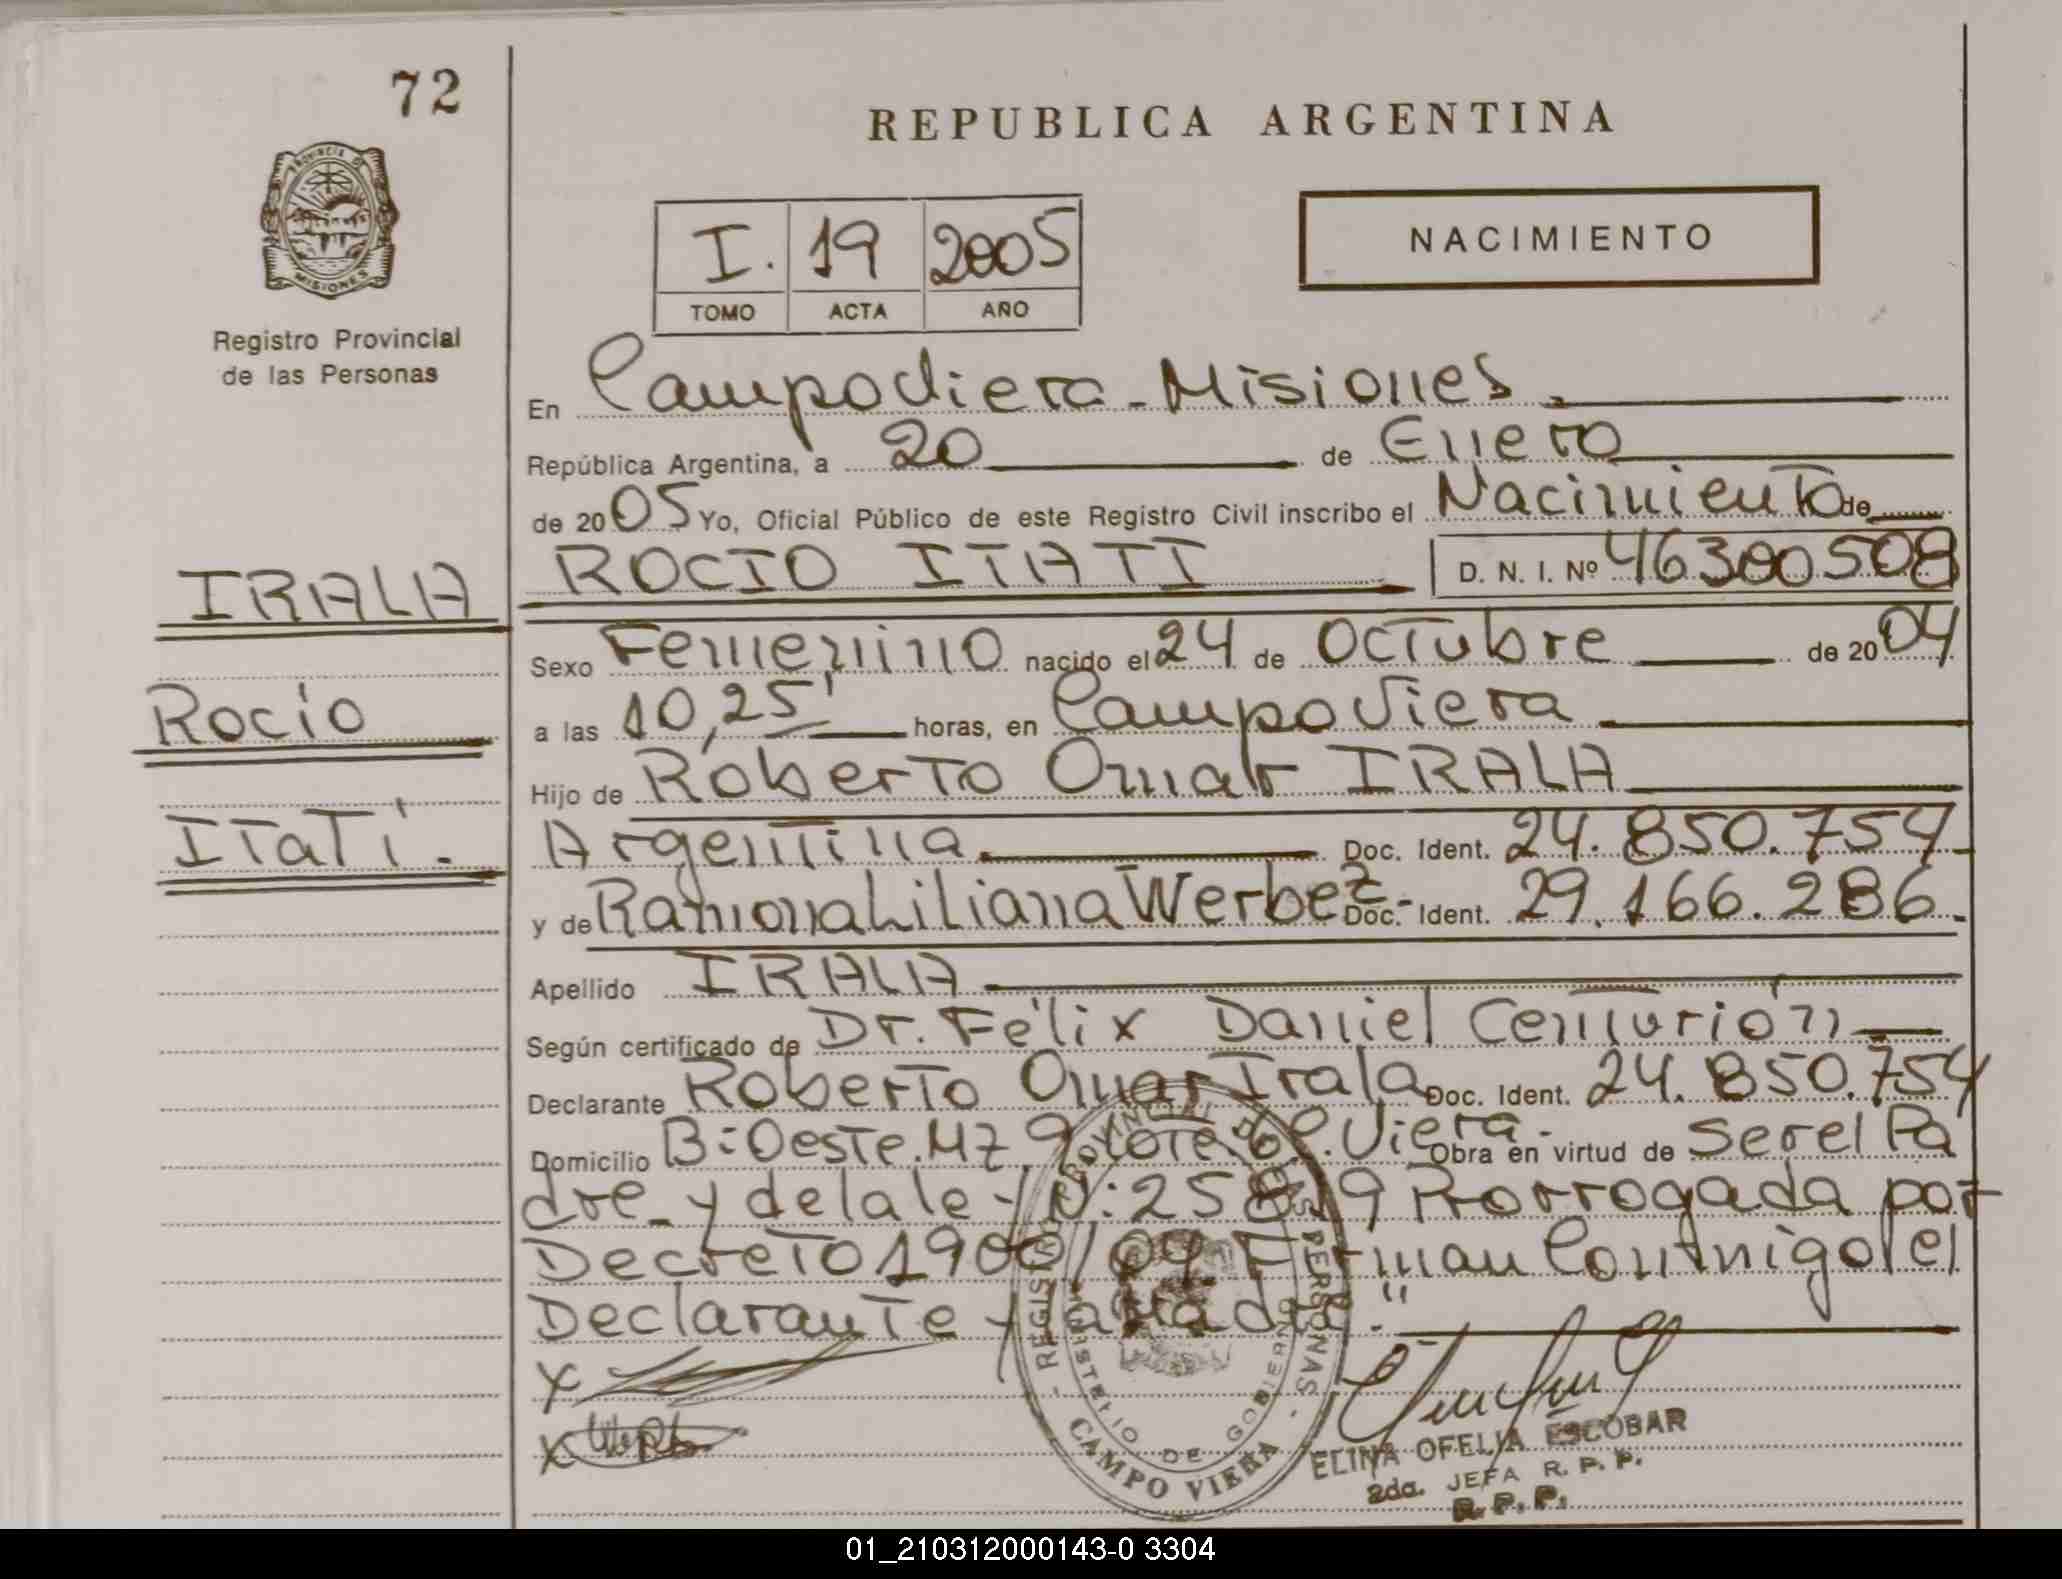 72
REPUBLICA ARGENTINA
PROVINCIA DE
MISIONES
Registro Provincial
de las Personas
NACIMIENTO
I. 19 2005
TOMO ACTA AÑO
En Campo Viera - Misiones.
República Argentina, a 20 de Enero
de 2005 Yo, Oficial Público de este Registro Civil inscribo el Nacimiento de
IRALA
ROCIO ITATI D. N. I. Nº 46300508
Sexo Femenino nacido el 24 de Octubre de 2004
Rocío
a las 10,25' horas, en Campo Viera
Hijo de Roberto Omar IRALA
Itatí.
Argentina Doc. Ident. 24.850.754
y de Ramona Liliana Werbez.- Doc. Ident. 29.166.286.
Apellido IRALA
Según certificado de Dr. Félix Daniel Centurión
Declarante Roberto Omar Irala Doc. Ident. 24.850.754
Domicilio B: Oeste. Mz 9 Lote 6 C. Viera. Obra en virtud de Ser el Pa
dre y de la le- Prorrogada por
Decreto 1900/04 Firman Conmigo el
Declarante y la Madre".
X
X
REGISTRO PROVINCIAL DE LAS PERSONAS
MINISTERIO DE GOBIERNO
CAMPO VIERA
ELINA OFELIA ESCOBAR
2da. JEFA R. P. P.
R. P. P.
01_210312000143-0 3304